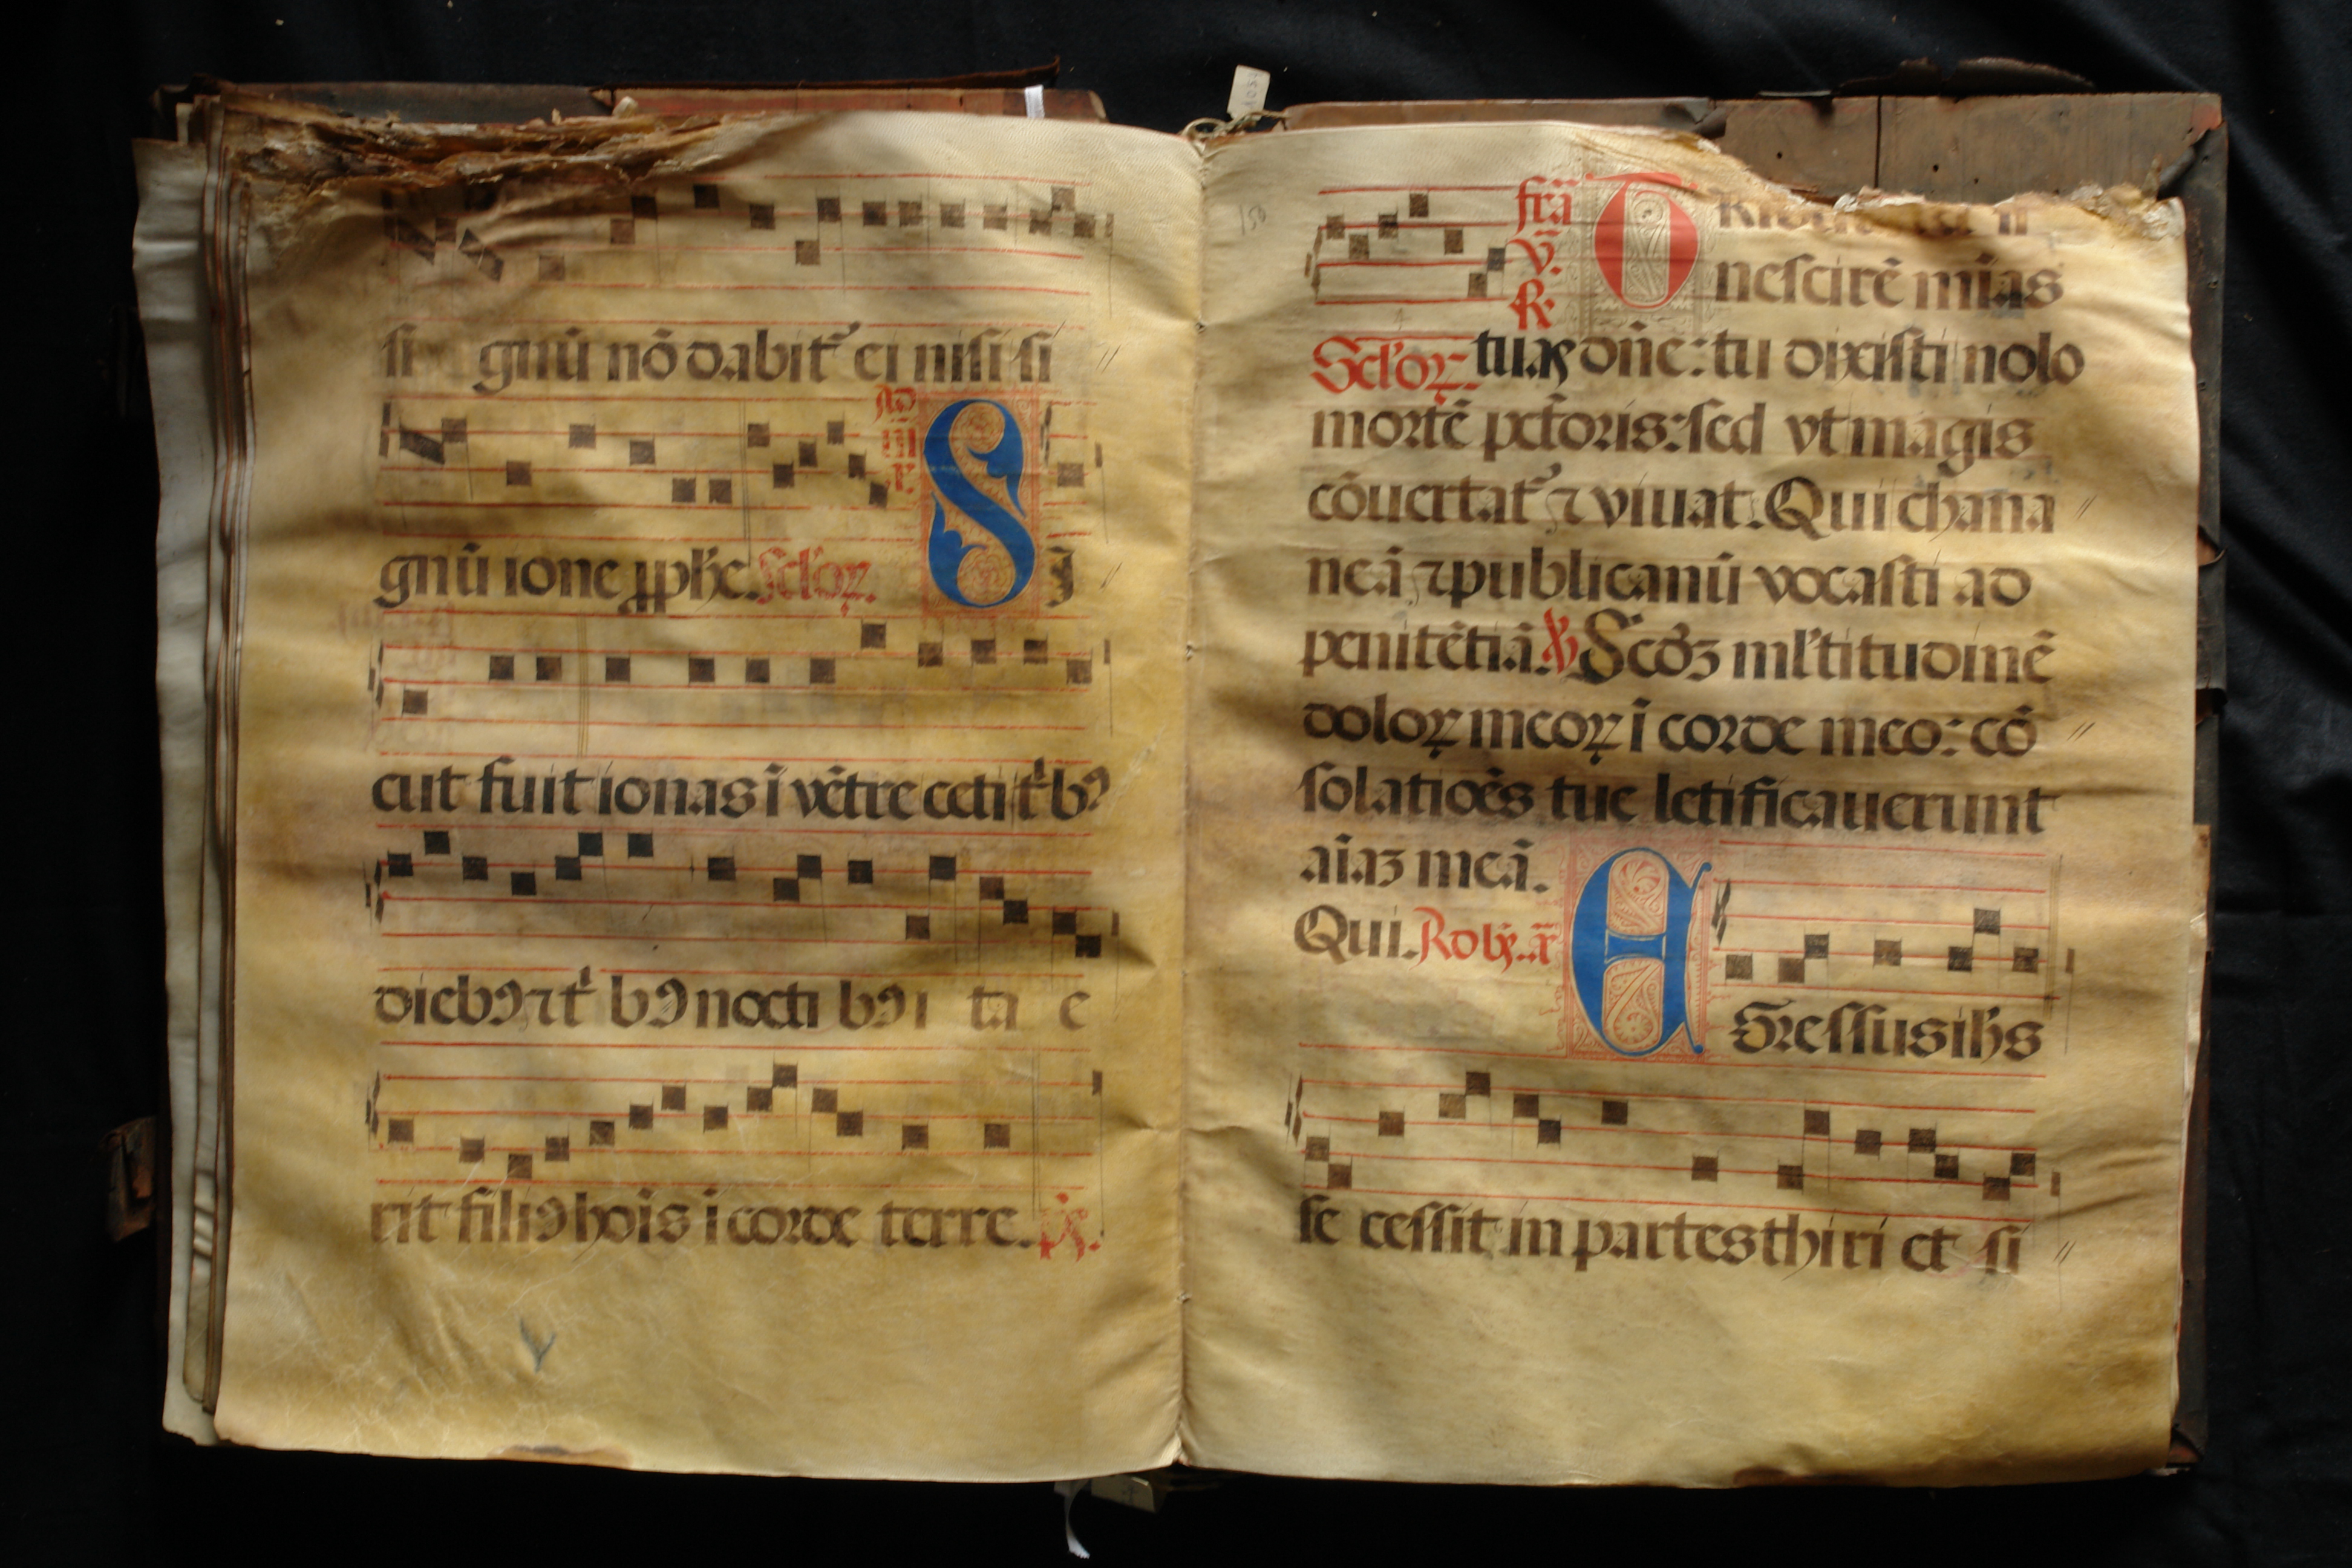 si gnū nō dabitᷣ ei nisi si
Ad
iii
R
gnū ione ꝓphē. Scl'oꝝ. S J
cut fuit ionas ī vētre ceti t'bꝰ
diebꝰ ⁊ t' bꝰ nocti bꝰ i ta e
rit filiꝰ hoīs ī corde terre. p̄s.
150
frā
V.
R.
O
nescirē mīas
Scl'oꝝ. tuas dn̄e: tu dixisti nolo
mortē pctoris: sed vt magis
cōuertatᷣ ⁊ viuat. Qui chana
neā ⁊ publicanū vocasti ad
penitētiā. V Scdꝫ ml'titudinē
doloꝝ meoꝝ ī corde meo: cō
solatiōes tue letificauerunt
aīaꝫ meā.
Qui. E
Gressus ih̄s
se cessit in partes thiri et si